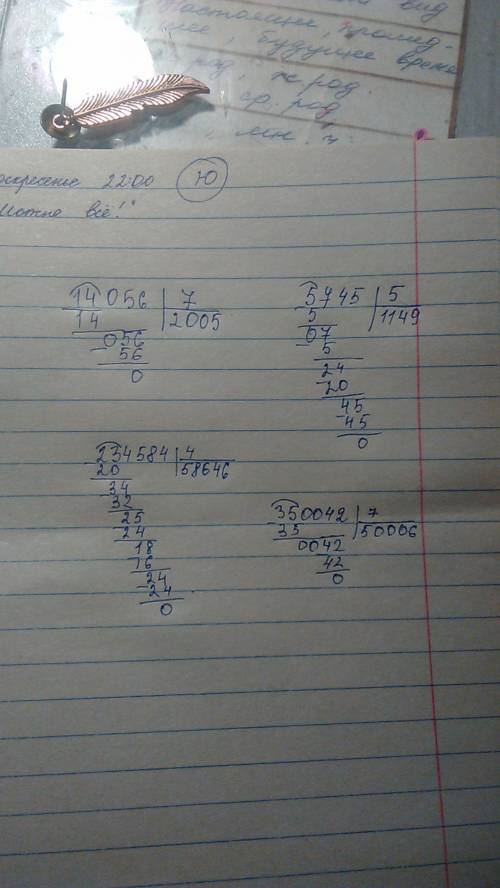 вид
Настоящее, прошед-
шее, будущее время
род, ж.род.
ср. род
мн. ч.
оскресенье 22:00 Ю
Можно всё!"
14056 7
14 2005
056
56
0
5745 5
5 1149
07
5
24
20
45
45
0
234584 4
20 58646
34
32
25
24
18
16
24
24
0
350042 7
35 50006
0042
42
0